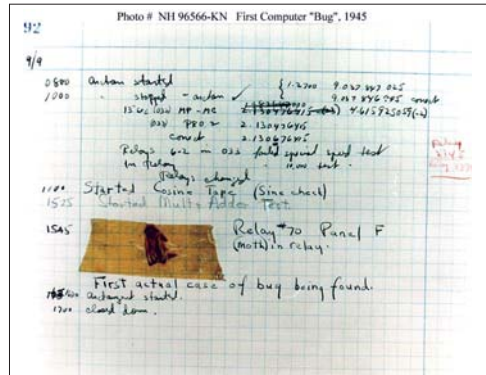 Photo # NH 96566-KN First Computer "Bug", 1945
92
9/9
0800 antan started
1000 " stopped - antan ✓ { 1.2700 9.037 847 025
9.037 846 995 correct
13"uc (032) MP - MC 4.615925059(-2)
(033) PRO 2 2.130476415
correct 2.130676415
Relays 6-2 in 033 failed special speed test
in relay 10.000 test.
Relays changed
1100 Started Cosine Tape (Sine check)
1525 Started Mult + Adder Test.
1545 Relay #70 Panel F
(moth) in relay.
First actual case of bug being found.
antangent started.
1700 closed down.